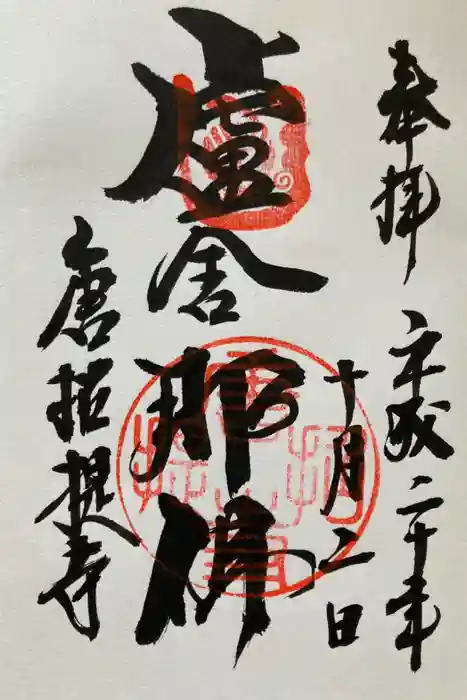 奉拝
平成二十年
十月二日
盧舎那佛
唐招提寺